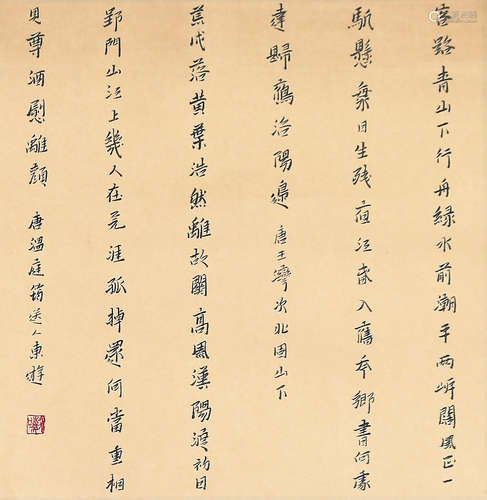 客路青山下行舟綠水前潮平兩岸闊風正一
帆懸乗日生残夜江春入舊年鄉書何處
達歸鴈洛陽邊 唐王灣次北固山下
荒戍落黃葉浩然離故關高風漢陽渡初日
郢門山江上幾人在天涯孤棹還何當重相
見尊酒慰離顏 唐溫庭筠送人東遊